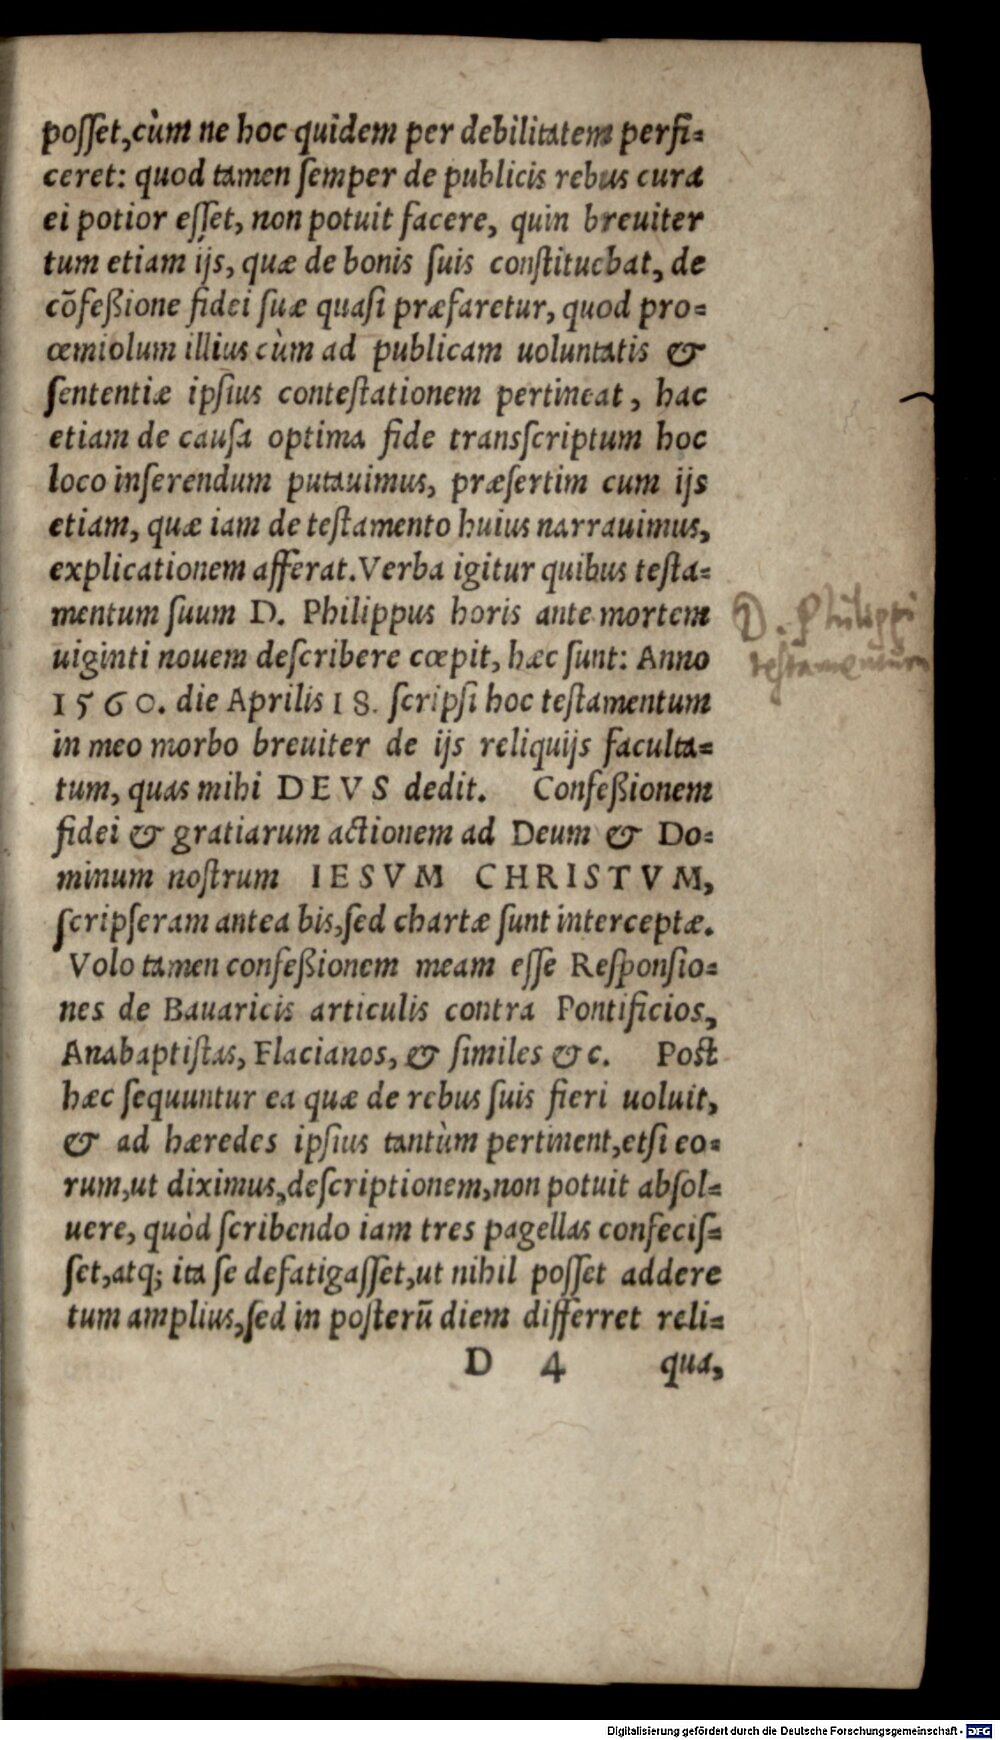 poſſet, cùm ne hoc quidem per debilitatem perfi=
ceret: quod tamen ſemper de publicis rebus cura
ei potior eſſet, non potuit facere, quin breuiter
tum etiam ijs, quæ de bonis ſuis conſtituebat, de
cõfeßione fidei ſuæ quaſi præfaretur, quod pro=
œmiolum illius cùm ad publicam uoluntatis &
ſententiæ ipſius conteſtationem pertineat, hac
etiam de cauſa optima fide transſcriptum hoc
loco inſerendum putauimus, præſertim cum ijs
etiam, quæ iam de teſtamento huius narrauimus,
explicationem afferat. Verba igitur quibus teſta=
mentum ſuum D. Philippus horis ante mortem
uiginti nouem deſcribere cœpit, hæc ſunt: Anno
1560. die Aprilis 18. ſcripſi hoc teſtamentum
in meo morbo breuiter de ijs reliquijs faculta=
tum, quas mihi DEVS dedit. Confeßionem
fidei & gratiarum actionem ad Deum & Do=
minum noſtrum IESVM CHRISTVM,
ſcripſeram antea bis, ſed chartæ ſunt interceptæ.
Volo tamen confeßionem meam eſſe Reſponſio=
nes de Bauaricis articulis contra Pontificios,
Anabaptiſtas, Flacianos, & ſimiles &c. Poſt
hæc ſequuntur ea quæ de rebus ſuis fieri uoluit,
& ad hæredes ipſius tantùm pertinent, etſi eo=
rum, ut diximus, deſcriptionem, non potuit abſol=
uere, quòd ſcribendo iam tres pagellas confeciſ=
ſet, atq; ita ſe defatigaſſet, ut nihil poſſet addere
tum amplius, ſed in poſterũ diem differret reli=
D 4 qua,
D. Philippi
testamentum
Digitalisierung gefördert durch die Deutsche Forschungsgemeinschaft - DFG